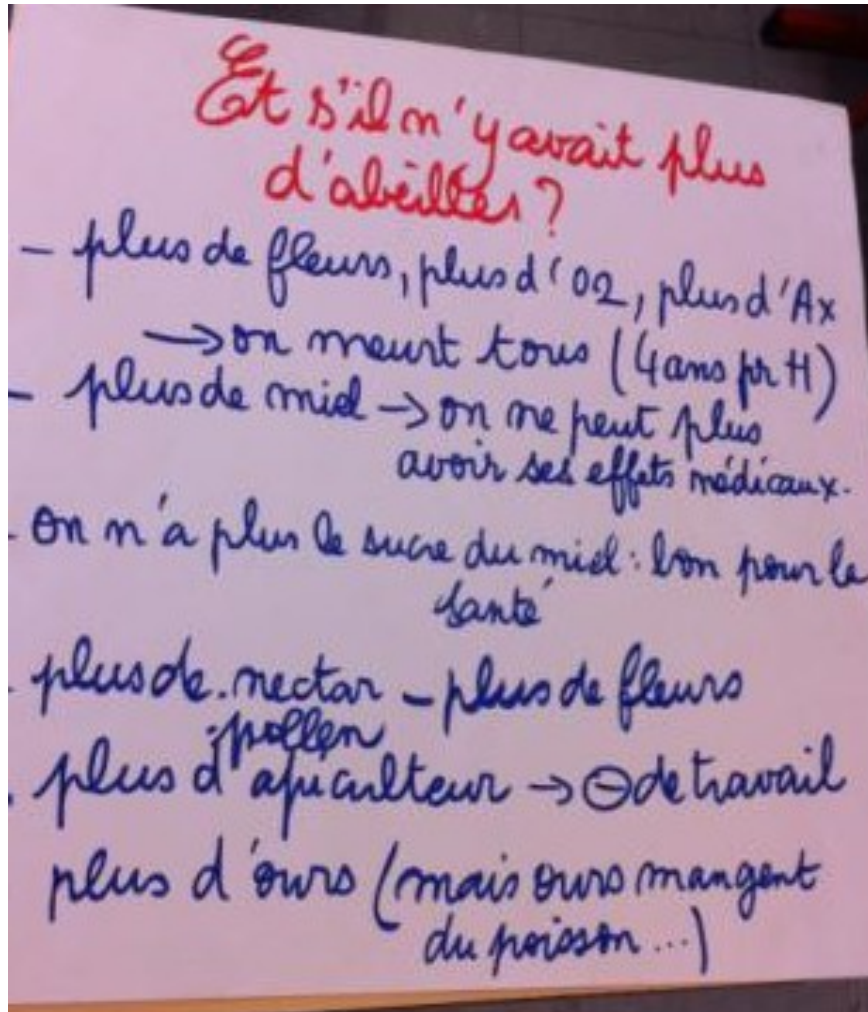 Et s'il n'y avait plus
d'abeilles ?
- plus de fleurs, plus d'O2, plus d'Ax
→ on meurt tous (4 ans pr H)
- plus de miel → on ne peut plus
avoir ses effets médicaux.
- on n'a plus le sucre du miel : bon pour la
santé
- plus de . nectar - plus de fleurs
. pollen
- plus d'apiculteur → ⊖ de travail
plus d'ours (mais ours mangent
du poisson ...)